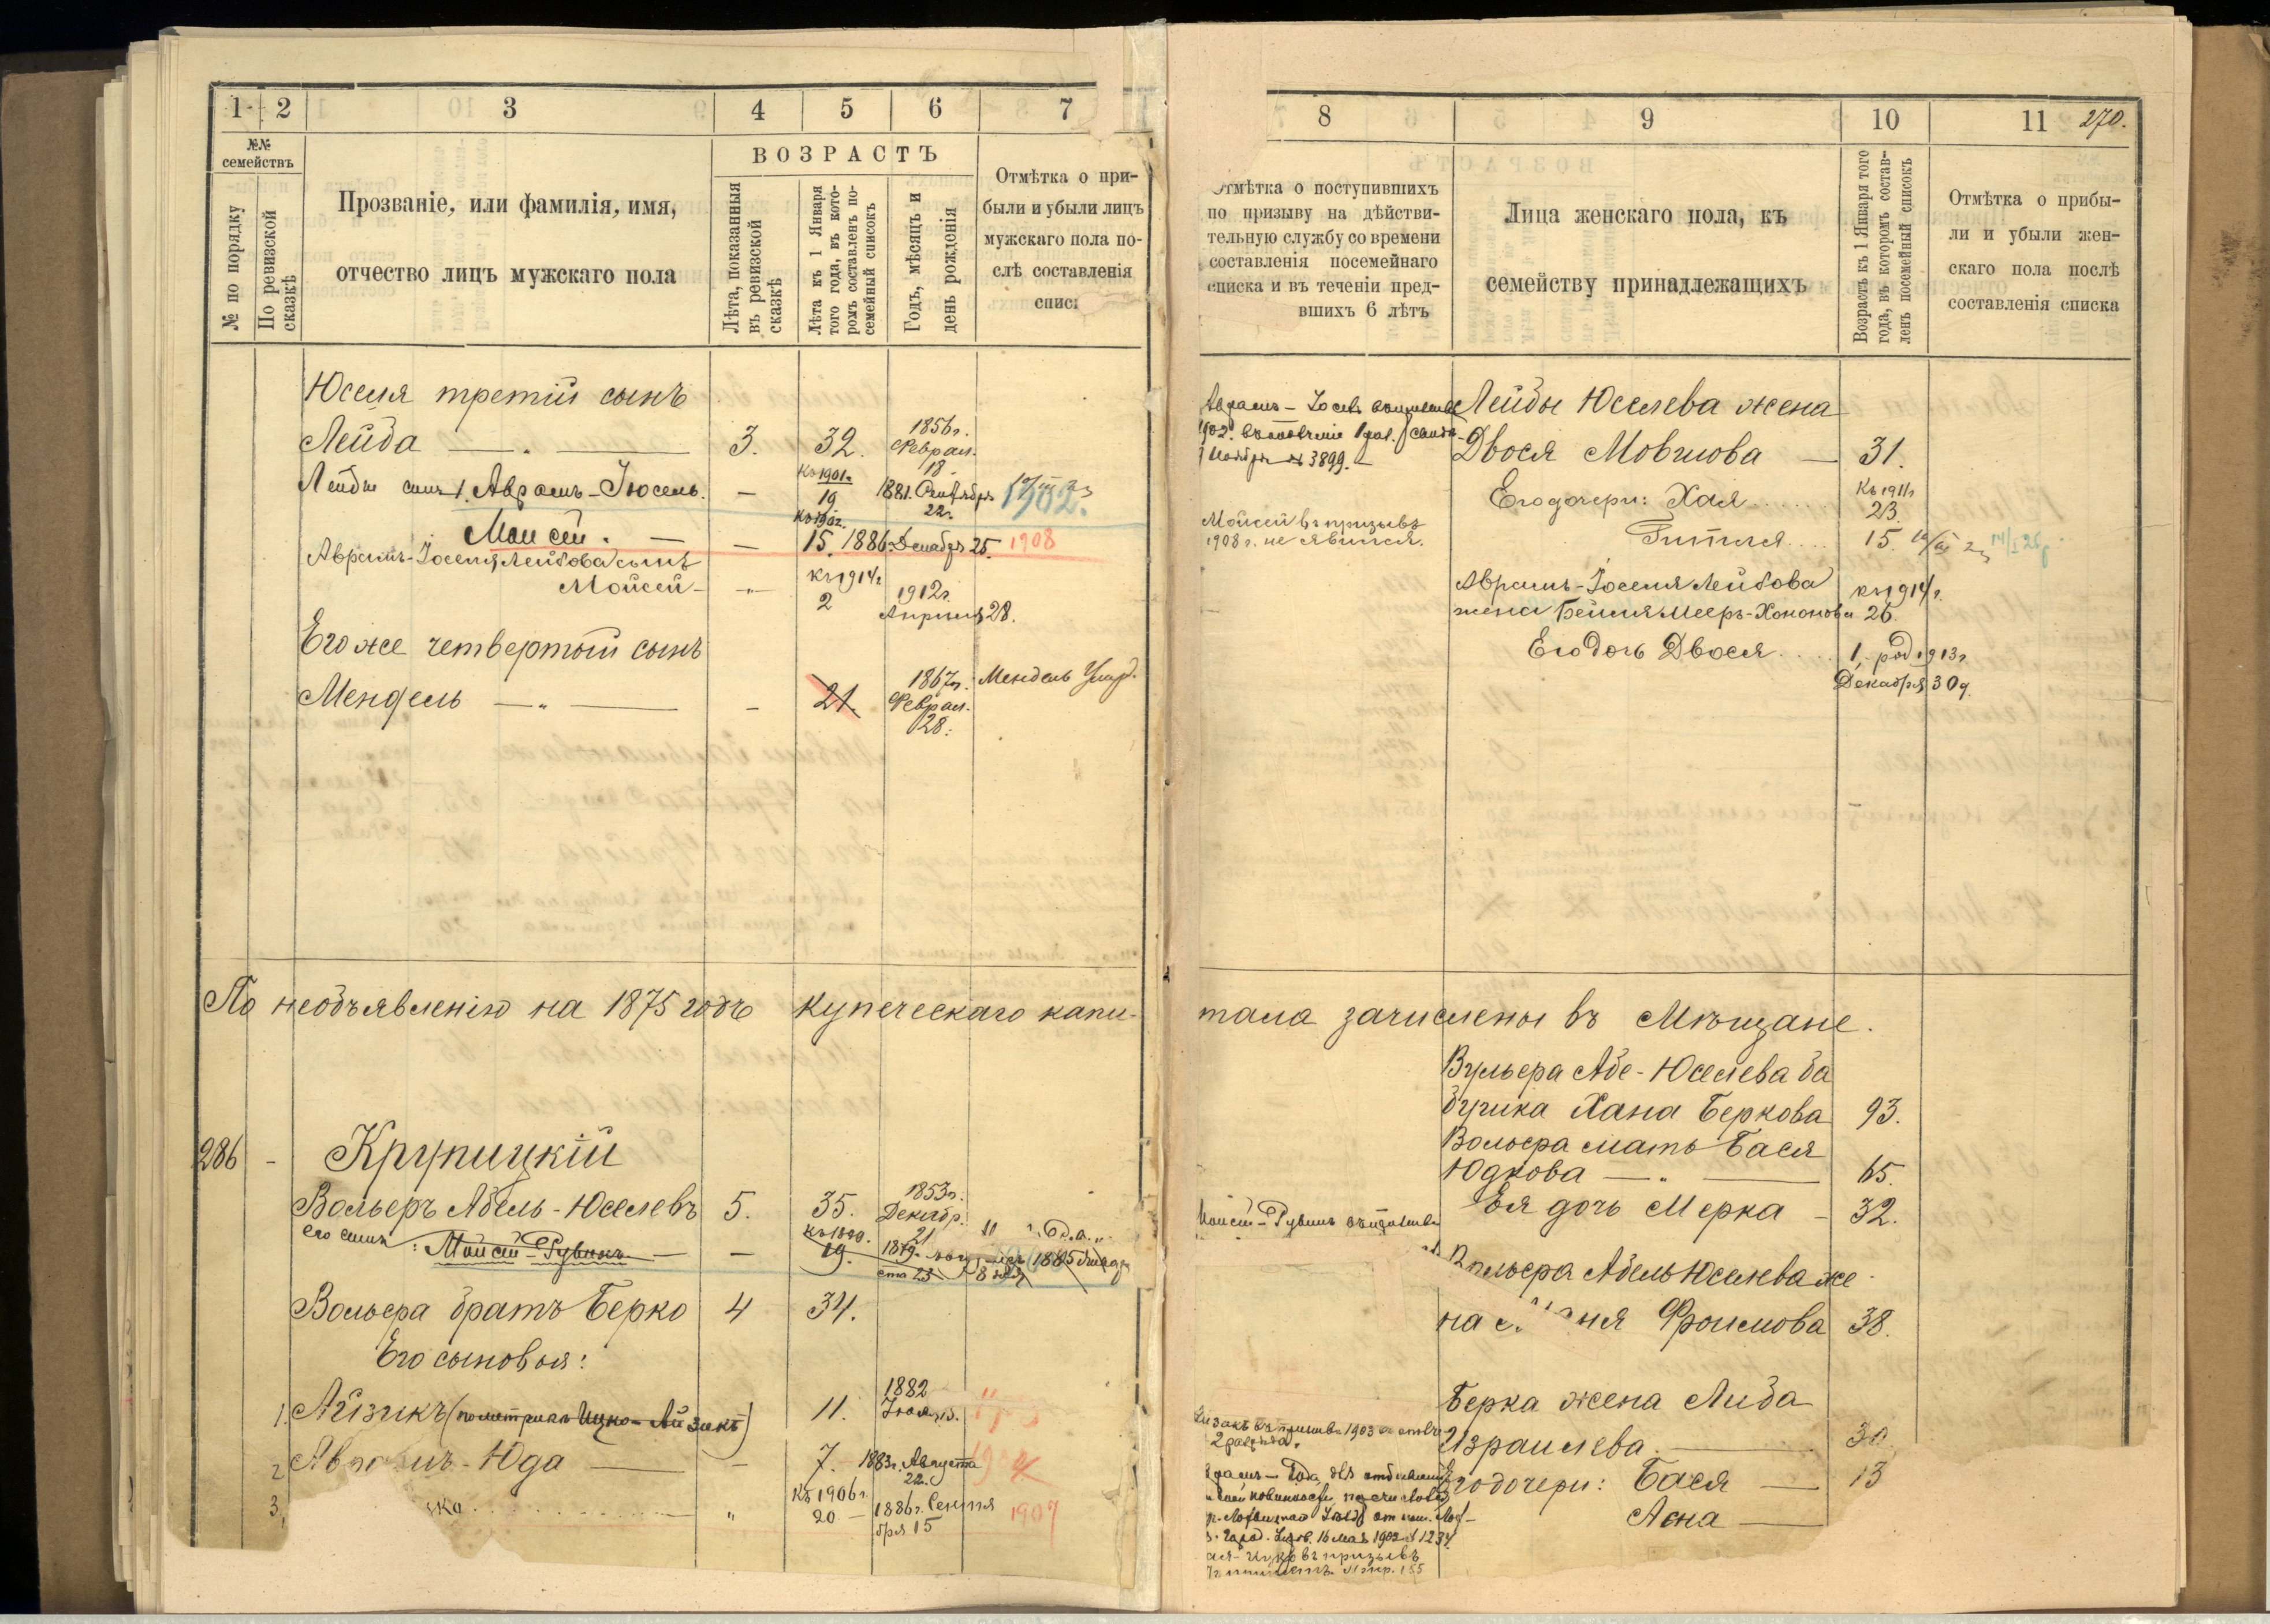 1 2 3 4 5 6 7
№№ семействъ
№ по порядку
По ревизской сказкѣ
Прозваніе, или фамилія, имя,
отчество лицъ мужскаго пола
ВОЗРАСТЪ
Лѣта, показанныя
въ ревизской
сказкѣ
Лѣта къ 1 Января
того года, въ кото-
ромъ составленъ по-
семейный списокъ
Годъ, мѣсяцъ и
день рожденія
Отмѣтка о при-
были и убыли лицъ
мужскаго пола по-
слѣ составленія
Юселя третій сынъ
Лейба — „ — 3. 32. 1856 г. Феврал. 18.
Лейбы сынъ 1. Абрамъ-Іосель. — къ 1901 г. 19 1881. Сентября 22. 1902.
Моисей. — — 15. 1886 г. Декабря 25. 1908
Абрамъ-Іоселя Лейбова сынъ
Мойсей — „ — къ 1914 г. 2 1912 г. Апрѣля 28.
Его же четвертый сынъ
Мендель — „ — — 21. 1867 г. Феврал. 28. Мендель
По необъявленію на 1875 годъ купеческаго капи-
286 - Крупицкій
Вольеръ Абель-Юселевъ 5. 35. 1853 г. Декабр. 21
его сынъ: Мойсей-Рувинъ — — 19.
Вольера братъ Берко 4 34.
Его сыновья:
1. Айзикъ (по метрикѣ Ицко-Айзикъ) 11. 1882
2 Юда — — 7. 1883 г. Августа 22.
3, „ къ 1906 г. 20 — 1886 г. Сентября 15 1907
8 9 10 11 270.
Отмѣтка о поступившихъ
по призыву на дѣйстви-
тельную службу со времени
составленія посемейнаго
списка и въ теченіи пред-
вшихъ 6 лѣтъ
Лица женскаго пола, къ
семейству принадлежащихъ
Возрастъ къ 1 Января того
года, въ которомъ состав-
ленъ посемейный списокъ
Отмѣтка о прибы-
ли и убыли жен-
скаго пола послѣ
составленія списка
Лейбы Юселева жена
№ 3899. — Двося Мовшова — 31.
Его дочери: Хая къ 1911 г. 23.
Мойсей въ призывъ
1908 г. не явился.
Гитля 15.
Абрамъ-Іоселя Лейбова къ 1914 г.
жена Бейля Мееръ-Хононова 26.
Его дочь Двося 1, род. 1913 г.
Декабря 30 д.
тала зачислены въ Мѣщане.
Вульера Абе-Юселева ба
бушка Хана Беркова 93.
Вольера мать Бася
Юдкова — „ — 65.
Ея дочь Мерка — 32.
Вольера Абель Юселева же
на Фроимова 38.
Берка жена Либа
Израилева. 30
Его дочери: Бася — 13
Асна —